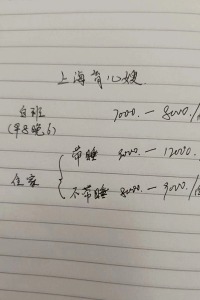 上海育儿嫂
白班 7000.－8000./
(早8晚6)
带睡 8000.－12000.
住家
不带睡 8000.－9000./